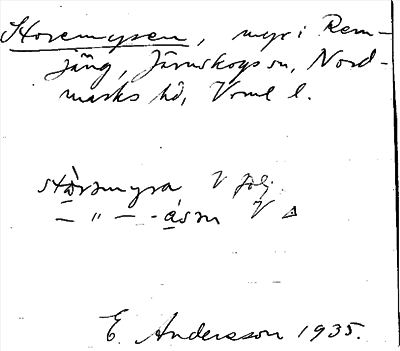 Storemyren, myr i Rem-
jäng, Järnskogs sn, Nord-
marks hd, Vrml l.
störmyra V följ.
— " — -åsm V △
E. Andersson 1935.